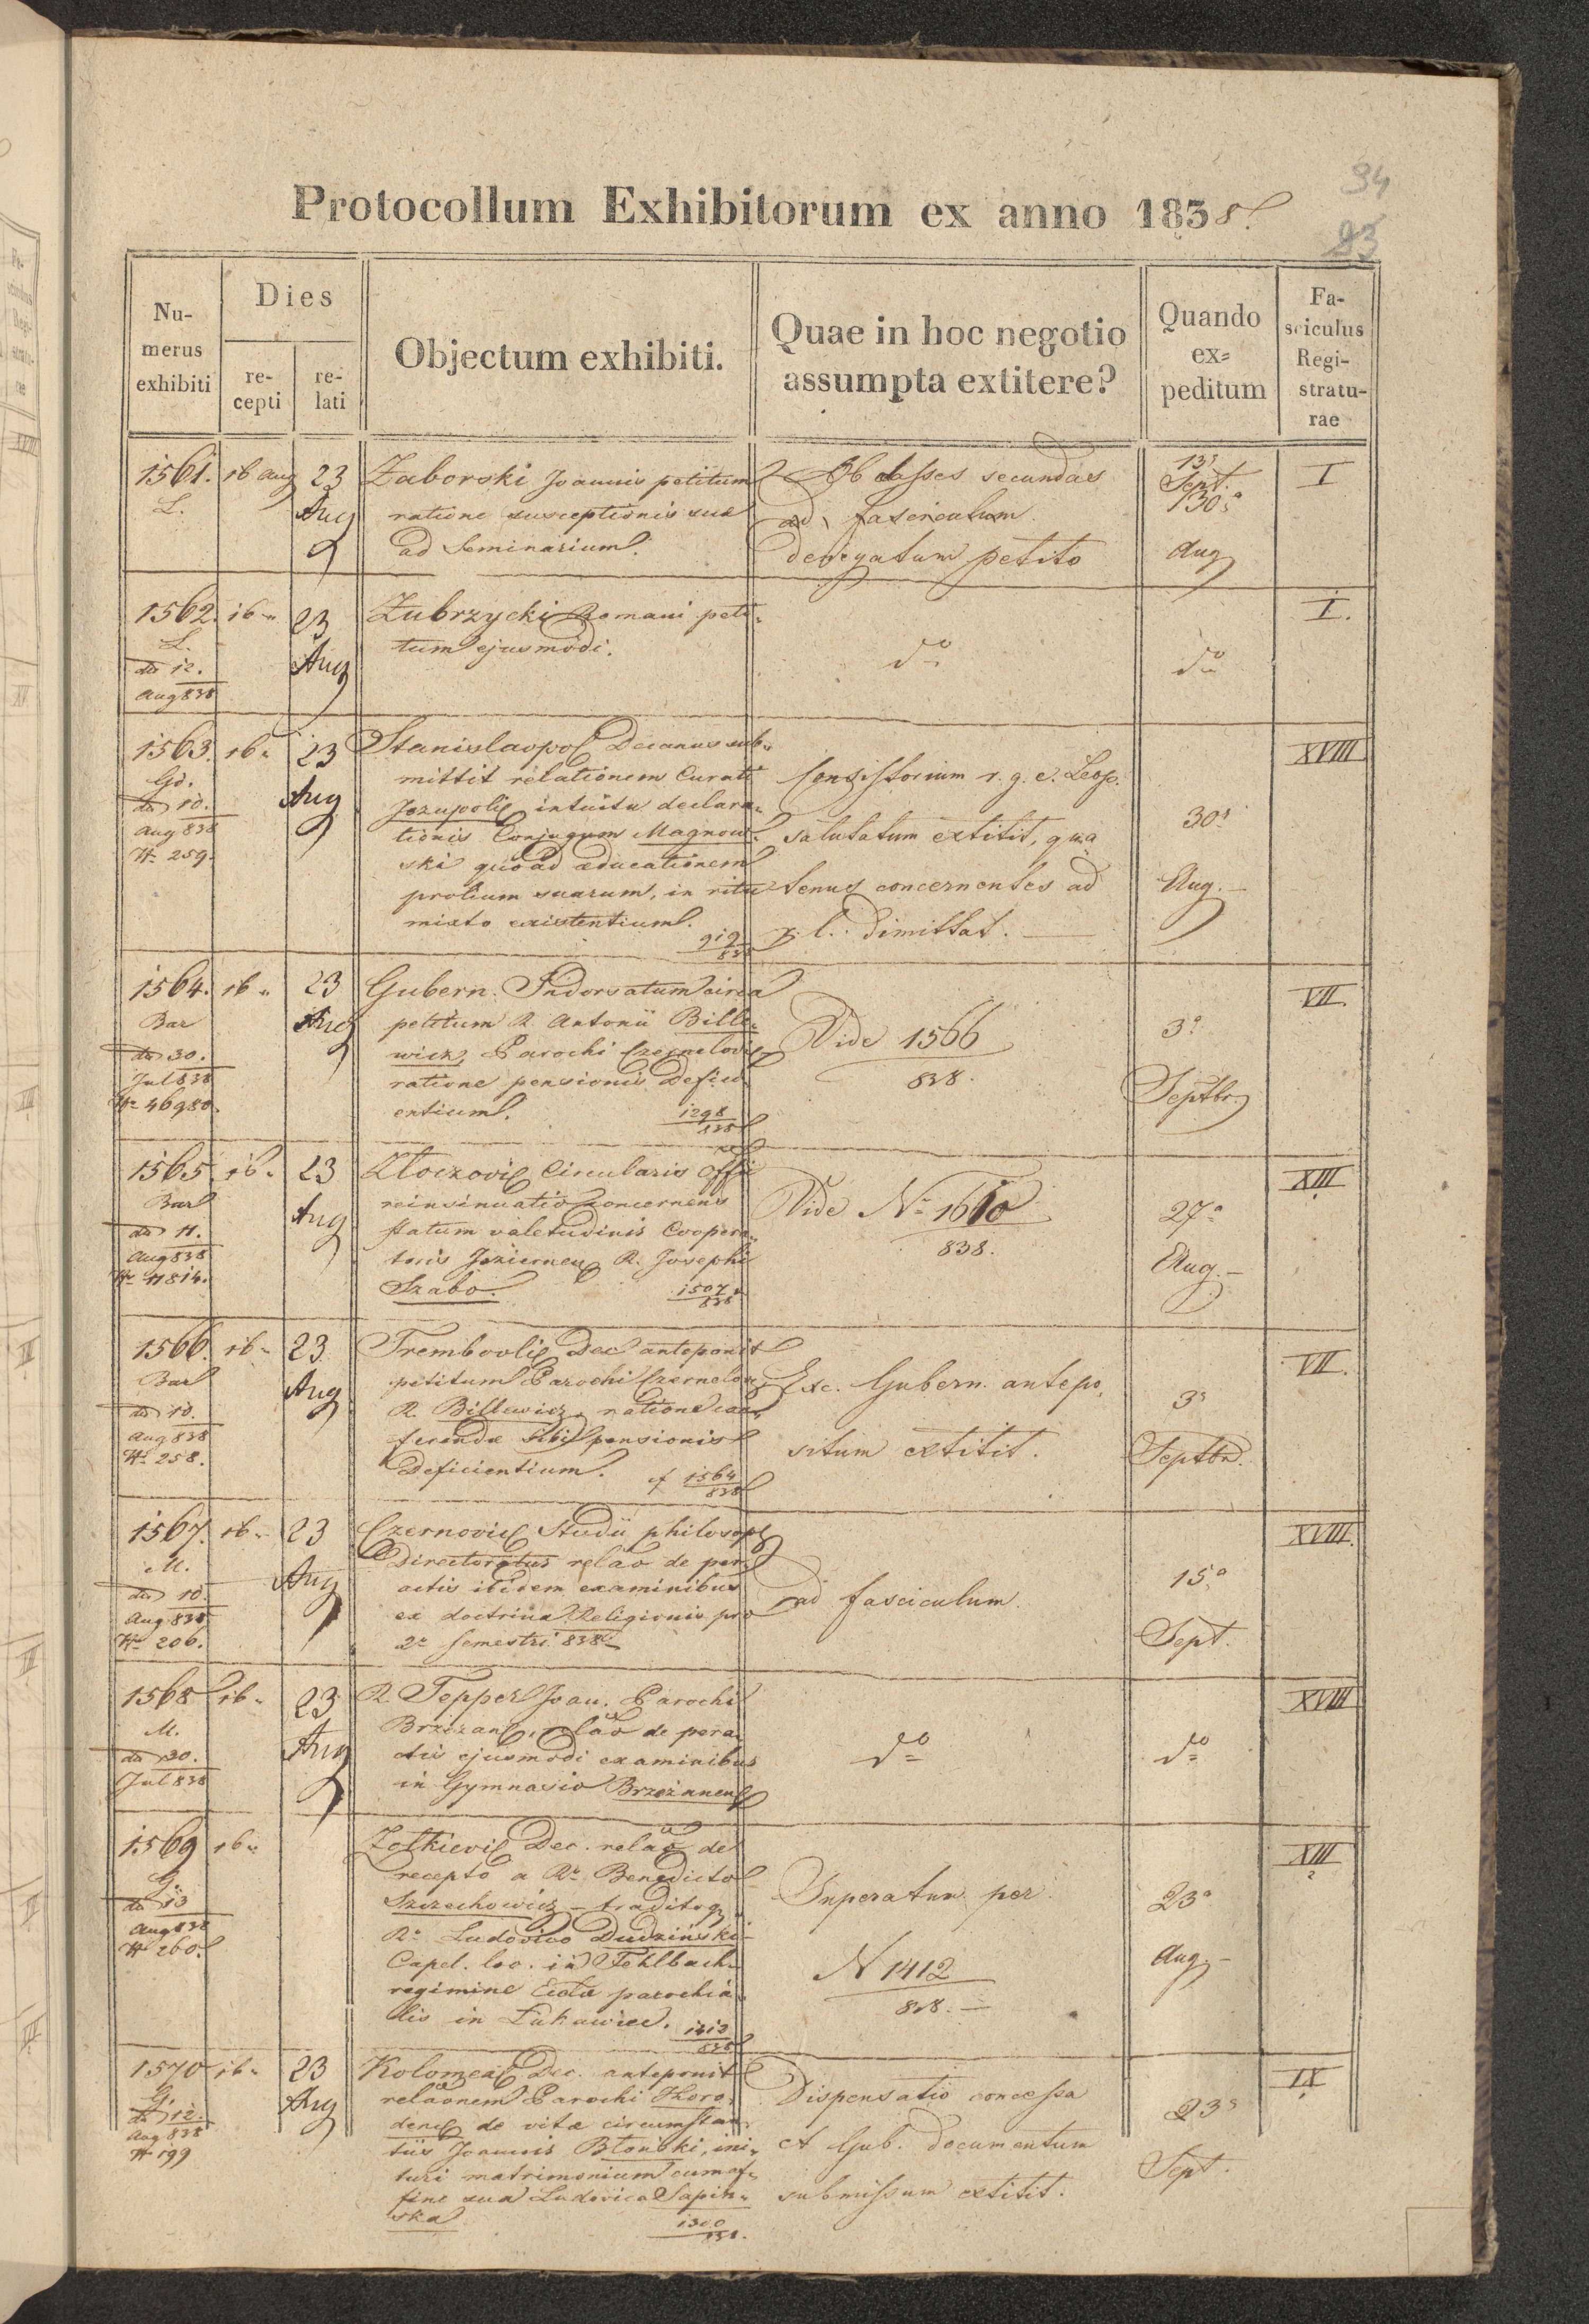 94
83
Protocollum Exhibitorum ex anno 1838.
Numerus exhibiti
Dies
recepti
relati
Objectum exhibiti.
Quae in hoc negotio
assumpta extitere?
Quando
ex=
peditum
Fa-
sciculus
Regi-
stratu-
rae
1561. 16 Aug 23 Aug
L.
Zaborski Joannis petitum
ratione susceptionis suae
ad Seminarium.
Ob classes secundas
ad fasciculum
denegatum petito
13a Sept.
30a Aug
I
1562. 16 " 23 Aug
L.
dto 12.
Aug 838
Zubrzycki Romani peti-
tum ejusmodi.
do
do
I.
1563. 16 " 23 Aug
Gd.
dto 10.
Aug 838
No 259.
Stanislaopol Decanus sub-
mittit relationem Curati
Jezupolis intuitu declara-
tionis Conjugum Magnow-
ski quoad educationem
prolium suarum, in ritu
mixto existentium.
919
838
Consistorium r. g. c. Leop.
salutatum extitit, qua
tenus concernentes ad
r. l. dimittat.
30a
Aug.
XVIII
1564. 16 " 23 Aug
Bar
dto 30.
Jul 838
No 46980.
Gubern. Indorsatum circa
petitum R. Antonii Bille-
wicz, Parochi Czernelovis
ratione pensionis defici-
entium.
1298
838
Vide 1566
838.
3a
Septbr
VII.
1565 16 " 23 Aug
Bar
dto 11.
Aug 838
No 11814.
Zloczovis Circularis Offii
reinsinuatio concernens
statum valetudinis Coopera-
toris Jeziernens R. Josephi
Szabo.
1507
838
Vide No 1610
838.
27a
Aug.
XIII
1566. 16 " 23 Aug
Bar
dto 10.
Aug 838
No 258.
Trembovlis Dec anteponit
petitum Parochi Czernelov
R. Billewicz, ratione con-
ferendae sibi pensionis
Deficientium. cf 1564
838
Exc. Gubern. antepo-
situm extitit.
3a
Septbr.
VII.
1567. 16 " 23 Aug
M.
dto 10.
Aug 838
No 206.
Czernovis Studii philosoph
Directoratus relao de per-
actis ibidem examinibus
ex doctrina Religionis pro
2o semestri 838.
ad fasciculum.
15a
Sept.
XVIII.
1568 16 " 23 Aug
M.
dto 30.
Jul 838
R. Tepper Joan. Parochi
Brzezan, relao de pera-
ctis ejusmodi examinibus
in Gymnasio Brzezanens
do
do
XVIII
1569 16 "
G.
dto 13
Aug 838
No 260.
Zolkievis Dec. relao de
recepto a Ro Benedicto
Szezechowicz - traditoq
Ro Ludovico Dudzinski
Capel. loc. in Fehlbach
regimine Ecclae parochia-
lis in Lukawiec.
1413
838
Superatum per
N 1412
838.
23a
Aug
XIII
1570 16 " 23 Aug
G.
dto 12.
Aug 838
No 199
Kolomeas Dec. anteponit
relaonem Parochi Horo-
dens de vitae circumstan-
tiis Joannis Błonski, ini-
turi matrimonium cum af-
fine sua Ludovica Sapin-
ska
1300
838.
Dispensatio concessa
et Gub. documentum
submissum extitit.
23a
Sept.
IX